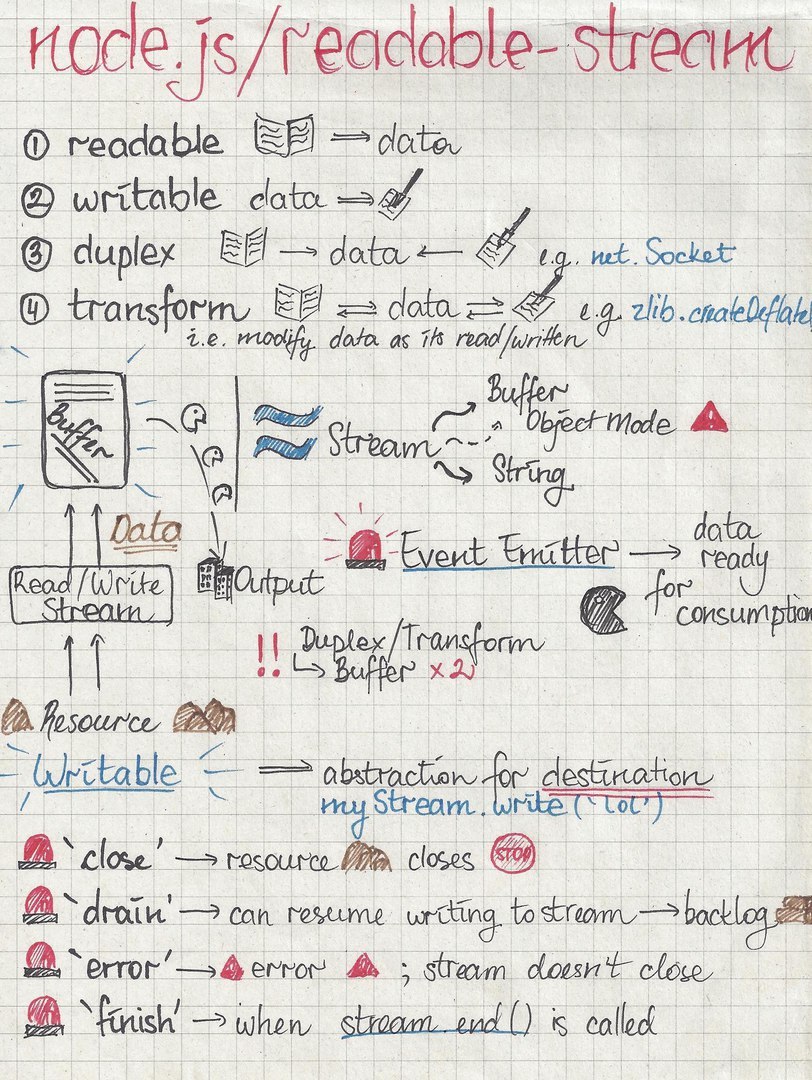 node.js/readable-stream
① readable ⇒ data
② writable data ⇒
③ duplex → data ← e.g. net.Socket
④ transform ⇌ data ⇌ e.g. zlib.createDeflate
i.e. modify data as its read/written
Buffer
Stream
Buffer
Object Mode
String
Data
Read/Write
Stream
Output
Event Emitter → data
ready
for
consumption
!! Duplex/Transform
↳ Buffer x2
Resource
Writable ⇒ abstraction for destination
myStream.write(`lol')
`close' → resource closes STOP
`drain' → can resume writing to stream → backlog
`error' → error ; stream doesn't close
`finish' → when stream.end() is called